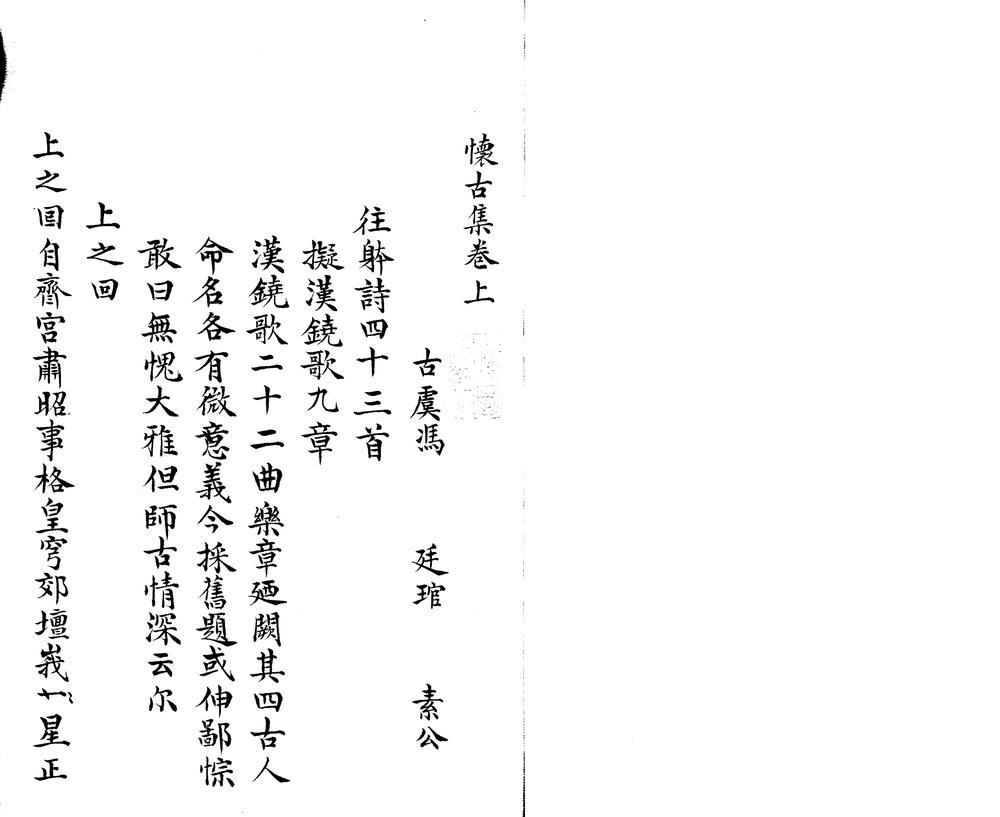 懷古集卷上
古虞馮 廷琯 素公
往躰詩四十三首
擬漢鐃歌九章
漢鐃歌二十二曲樂章廼闕其四古人
命名各有微意義今採舊題或伸鄙悰
敢曰無愧大雅但師古情深云尔
上之回
上之回自齊宮肅昭事格皇穹郊壇峩〻星正